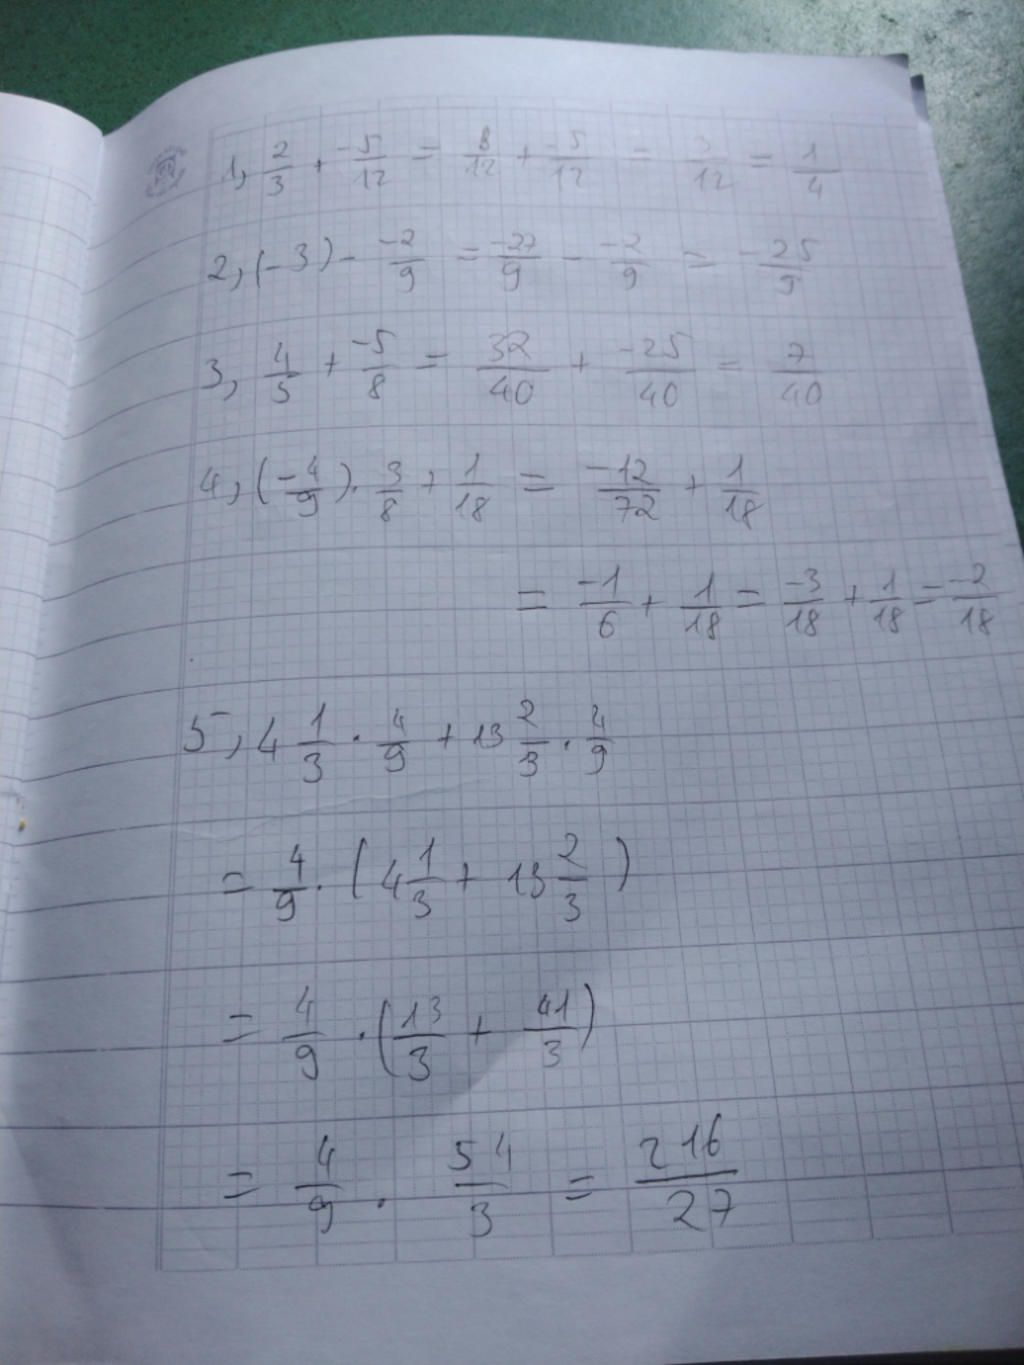 1, 2/3 + -5/12 = 8/12 + -5/12 = 3/12 = 1/4
2, (-3) - -2/9 = -27/9 - -2/9 = -25/9
3, 4/5 + -5/8 = 32/40 + -25/40 = 7/40
4, (-4/9) . 3/8 + 1/18 = -12/72 + 1/18
= -1/6 + 1/18 = -3/18 + 1/18 = -2/18
5, 4 1/3 . 4/9 + 13 2/3 . 4/9
= 4/9 . (4 1/3 + 13 2/3)
= 4/9 . (13/3 + 41/3)
= 4/9 . 54/3 = 216/27